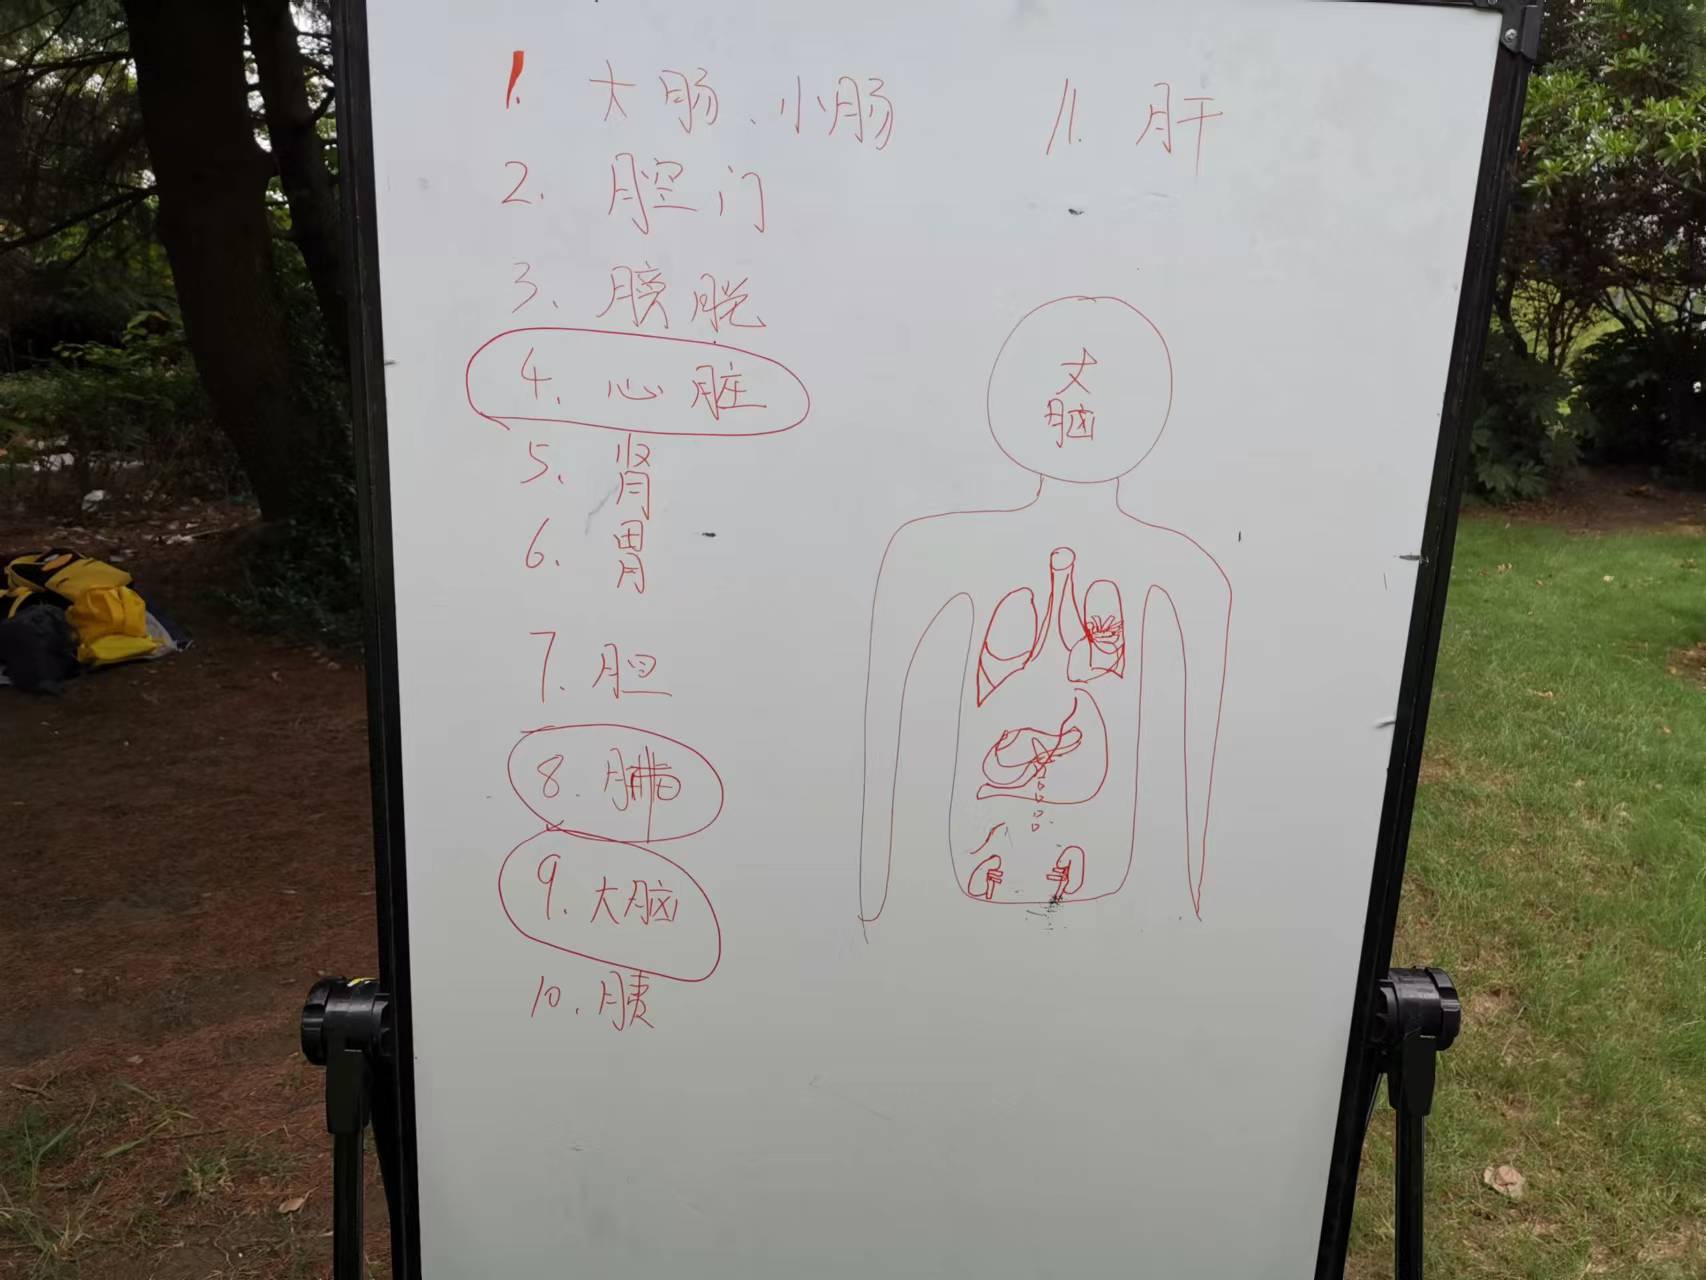 1. 大肠、小肠
2. 腔门
3. 膀胱
4. 心脏
5. 肾
6. 胃
7. 胆
8. 肺
9. 大脑
10. 胰
11. 肝
大
脑